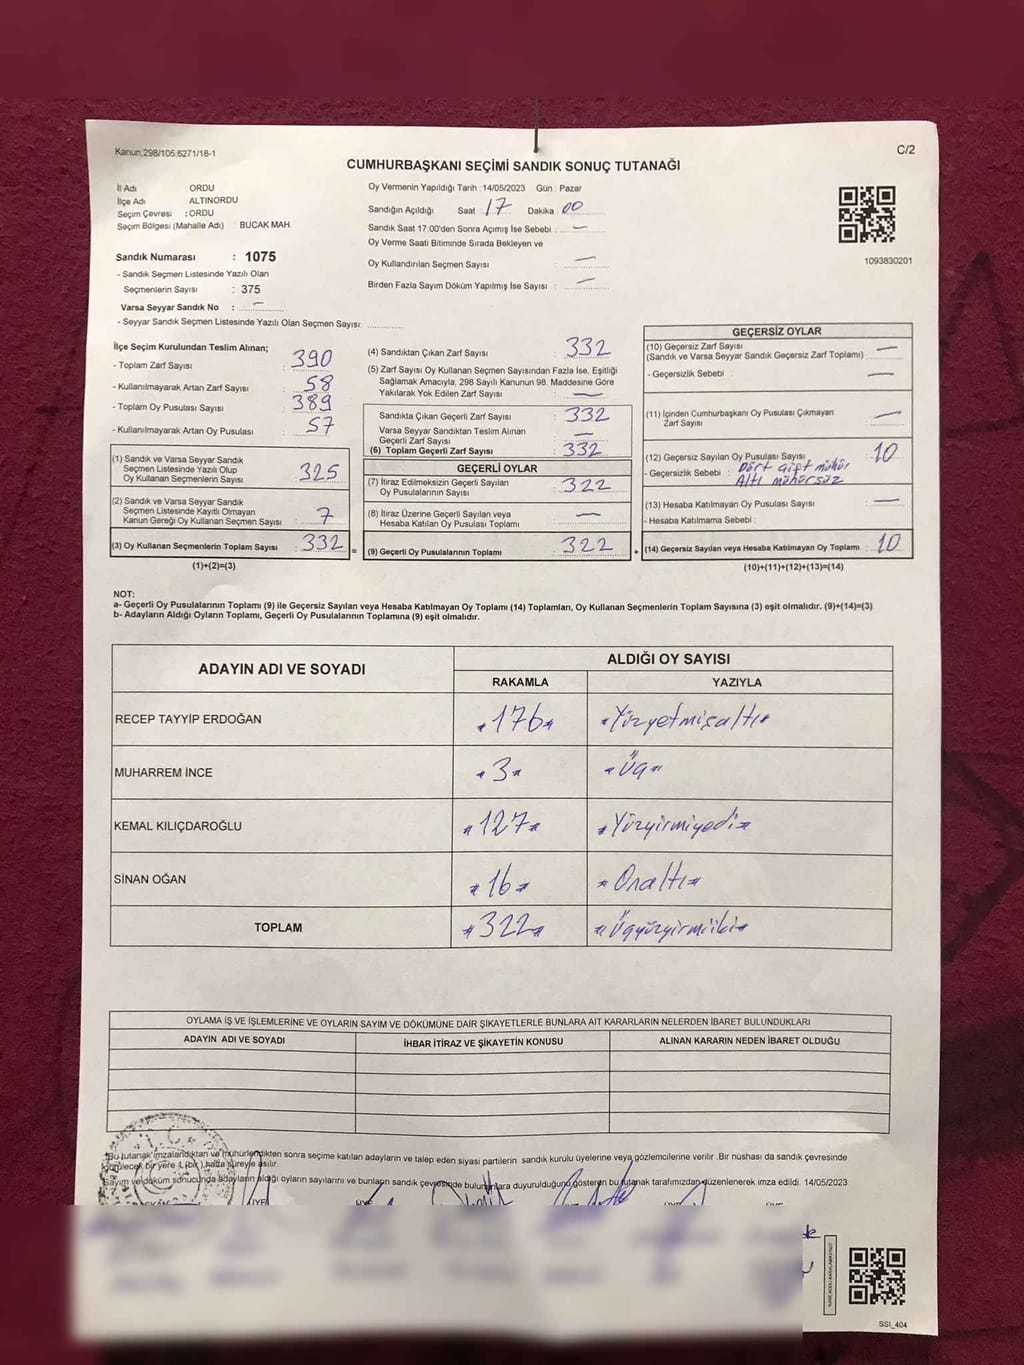 Kanun;298/105;6271/18-1
C/2
CUMHURBAŞKANI SEÇİMİ SANDIK SONUÇ TUTANAĞI
İl Adı ORDU
İlçe Adı ALTINORDU
Seçim Çevresi : ORDU
Seçim Bölgesi (Mahalle Adı) : BUCAK MAH.
Oy Vermenin Yapıldığı Tarih :14/05/2023 Gün : Pazar
Sandığın Açıldığı Saat : 17 Dakika : 00
Sandık Saat 17.00'den Sonra Açımış İse Sebebi : —
Oy Verme Saati Bitiminde Sırada Bekleyen ve
Oy Kullandırılan Seçmen Sayısı : —
Birden Fazla Sayım Döküm Yapılmış İse Sayısı : —
1093830201
Sandık Numarası : 1075
- Sandık Seçmen Listesinde Yazılı Olan
Seçmenlerin Sayısı : 375
Varsa Seyyar Sandık No : —
- Seyyar Sandık Seçmen Listesinde Yazılı Olan Seçmen Sayısı:
İlçe Seçim Kurulundan Teslim Alınan;
- Toplam Zarf Sayısı : 390
- Kullanılmayarak Artan Zarf Sayısı : 58
- Toplam Oy Pusulası Sayısı : 389
- Kullanılmayarak Artan Oy Pusulası : 57
(1) Sandık ve Varsa Seyyar Sandık
Seçmen Listesinde Yazılı Olup
Oy Kullanan Seçmenlerin Sayısı : 325
(2) Sandık ve Varsa Seyyar Sandık
Seçmen Listesinde Kayıtlı Olmayan
Kanun Gereği Oy Kullanan Seçmen Sayısı : 7
(3) Oy Kullanan Seçmenlerin Toplam Sayısı : 332 =
(1)+(2)=(3)
(4) Sandıktan Çıkan Zarf Sayısı : 332
(5) Zarf Sayısı Oy Kullanan Seçmen Sayısından Fazla İse, Eşitliği
Sağlamak Amacıyla; 298 Sayılı Kanunun 98. Maddesine Göre
Yakılarak Yok Edilen Zarf Sayısı : —
Sandıkta Çıkan Geçerli Zarf Sayısı : 332
Varsa Seyyar Sandıktan Teslim Alınan
Geçerli Zarf Sayısı : —
(6) Toplam Geçerli Zarf Sayısı : 332
GEÇERLİ OYLAR
(7) İtiraz Edilmeksizin Geçerli Sayılan
Oy Pusulalarının Sayısı : 322
(8) İtiraz Üzerine Geçerli Sayılan veya
Hesaba Katılan Oy Pusulası Toplamı : —
(9) Geçerli Oy Pusulalarının Toplamı : 322 +
GEÇERSİZ OYLAR
(10) Geçersiz Zarf Sayısı
(Sandık ve Varsa Seyyar Sandık Geçersiz Zarf Toplamı) : —
- Geçersizlik Sebebi : —
(11) İçinden Cumhurbaşkanı Oy Pusulası Çıkmayan
Zarf Sayısı : —
(12) Geçersiz Sayılan Oy Pusulası Sayısı : 10
- Geçersizlik Sebebi : Dört çift mühür
Altı mühürsüz
(13) Hesaba Katılmayan Oy Pusulası Sayısı : —
- Hesaba Katılmama Sebebi :
(14) Geçersiz Sayılan veya Hesaba Katılmayan Oy Toplamı : 10
(10)+(11)+(12)+(13)=(14)
NOT:
a- Geçerli Oy Pusulalarının Toplamı (9) ile Geçersiz Sayılan veya Hesaba Katılmayan Oy Toplamı (14) Toplamları, Oy Kullanan Seçmenlerin Toplam Sayısına (3) eşit olmalıdır. (9)+(14)=(3)
b- Adayların Aldığı Oyların Toplamı, Geçerli Oy Pusulalarının Toplamına (9) eşit olmalıdır.
ADAYIN ADI VE SOYADI
ALDIĞI OY SAYISI
RAKAMLA YAZIYLA
RECEP TAYYİP ERDOĞAN *176* *Yüzyetmişaltı*
MUHARREM İNCE *3* *Üç*
KEMAL KILIÇDAROĞLU *127* *Yüzyirmiyedi*
SİNAN OĞAN *16* *Onaltı*
TOPLAM *322* *Üçyüzyirmiiki*
OYLAMA İŞ VE İŞLEMLERİNE VE OYLARIN SAYIM VE DÖKÜMÜNE DAİR ŞİKAYETLERLE BUNLARA AİT KARARLARIN NELERDEN İBARET BULUNDUKLARI
ADAYIN ADI VE SOYADI İHBAR İTİRAZ VE ŞİKAYETİN KONUSU ALINAN KARARIN NEDEN İBARET OLDUĞU
Bu tutanak imzalandıktan ve mühürlendikten sonra seçime katılan adayların ve talep eden siyasi partilerin sandık kurulu üyelerine veya gözlemcilerine verilir .Bir nüshası da sandık çevresinde
görülecek bir yere 1.(bir.) hafta süreyle asılır.
Sayım ve döküm sonucunda adayların aldığı oyların sayılarını ve bunların sandık çevresinde bulunanlara duyurulduğunu gösteren bu tutanak tarafımızdan düzenlenerek imza edildi. 14/05/2023
SSI_404